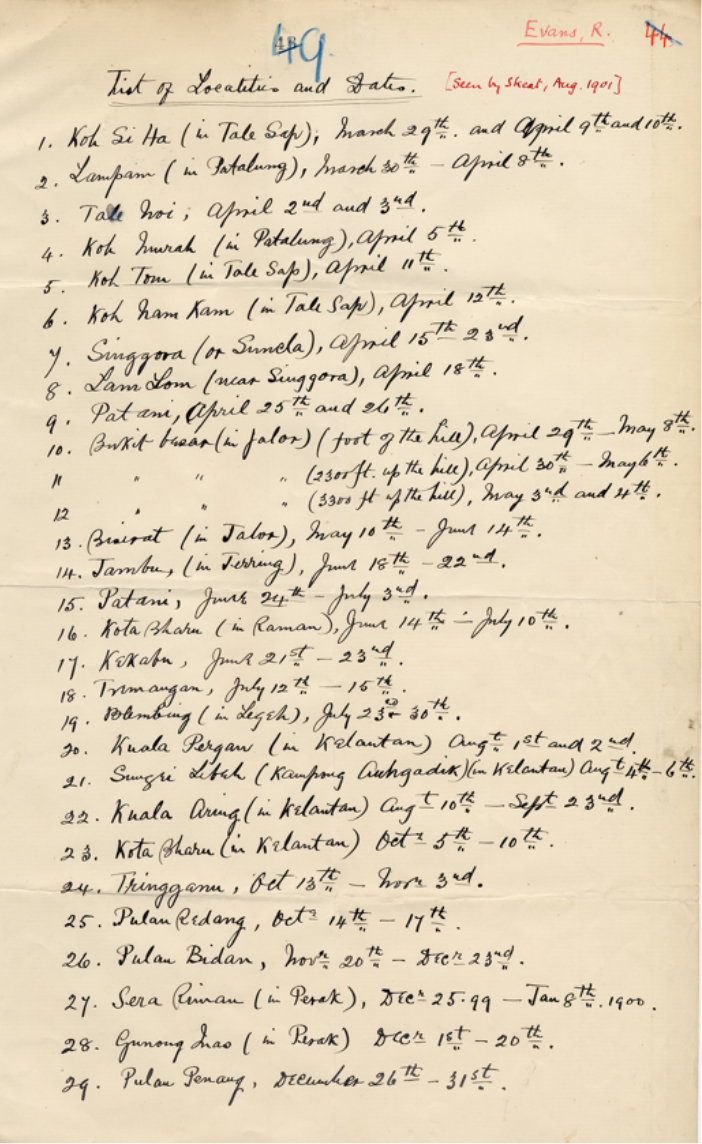 49
Evans, R. 44
List of Localities and Dates. [Seen by Skeat, Aug. 1901]
1. Koh Si Ha (in Tale Sap); March 29th. and April 9th and 10th.
2. Lampam (in Patalung), March 30th – April 8th.
3. Tale Noi; April 2nd and 3rd.
4. Koh Murah (in Patalung), April 5th.
5. Koh Tom (in Tale Sap), April 11th.
6. Koh Nam Kam (in Tale Sap), April 12th.
7. Singgora (or Suncla), April 15th 23rd.
8. Lam Lom (near Singgora), April 18th.
9. Patani, April 25th and 26th.
10. Bukit besar (in Jalor) (foot of the hill), April 29th – May 8th.
11 " " " (2300 ft. up the hill), April 30th – May 6th.
12 " " " (3300 ft up the hill), May 3rd and 4th.
13. Biserat (in Jalor), May 10th – June 14th.
14. Jambu, (in Jerring), June 18th – 22nd.
15. Patani, June 24th – July 3rd.
16. Kota Bharu (in Raman), June 14th – July 10th.
17. Kekabu, June 21st – 23rd.
18. Temangan, July 12th – 15th.
19. Belimbing (in Legeh), July 23rd 30th.
20. Kuala Pergau (in Kelantan) Augt 1st and 2nd.
21. Sungei Lebeh (Kampong Auhgadik) (in Kelantan) Augt 4th – 6th.
22. Kuala Aring (in Kelantan) Augt 10th – Sept 23rd.
23. Kota Bharu (in Kelantan) Octr 5th – 10th.
24. Tringganu, Oct 13th – Novr 3rd.
25. Pulau Redang, Octr 14th – 17th.
26. Pulau Bidan, Novr 20th – Decr 23rd.
27. Sera Riman (in Perak), Decr 25.99 – Jan 8th. 1900.
28. Gunong Inas (in Perak) Decr 1st – 20th.
29. Pulau Penang, December 26th – 31st.